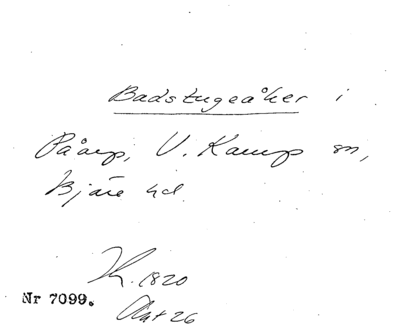 Badstugeåker i
Påarp, V. Karup sn,
Bjäre hd.
K. 1820
Nr 7099.
Akt 26